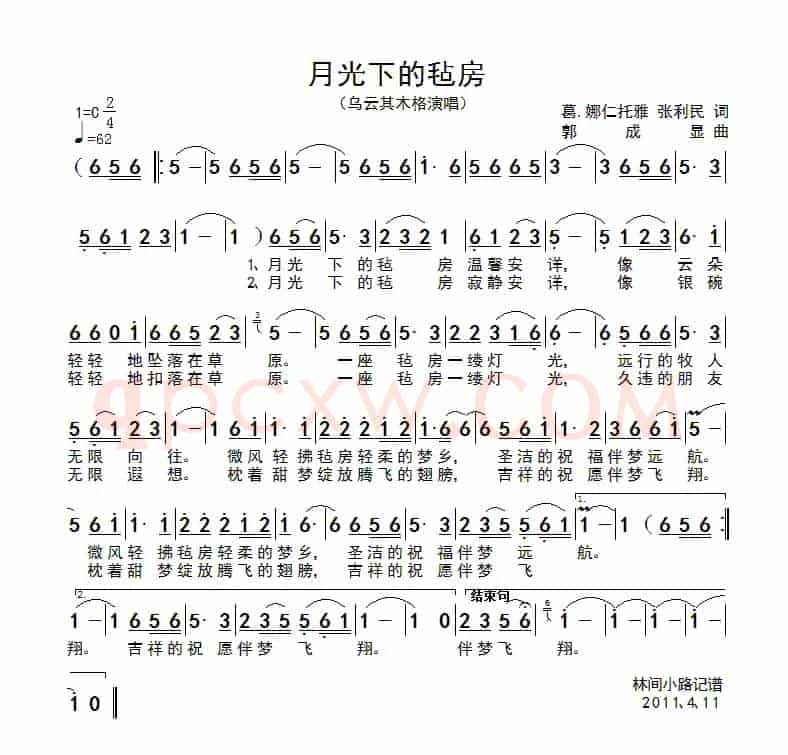 月光下的毡房
（乌云其木格演唱）
1=C 2/4
♩=62
葛.娜仁托雅 张利民 词
郭成显 曲
（656 ‖: 5－|5656|5－|5－|565 5|1· 6|5665|3－|3656|5· 3
561 23|1－|1 ）656|5· 3|2321|6123|5－|5 123|6· i
1、月光 下的毡 房温馨安 详， 像 云朵
2、月光 下的毡 房寂静安 详， 像 银碗
660i|6665 23|5－|5656|1· 3|22316|5－|5665|3· 3
轻轻 地坠落在草 原。 一座 毡房一缕灯 光， 远行的牧人
轻轻 地扣落在草 原。 一座 毡房一缕灯 光， 久违的朋友
qpcxw.COM
无限 向往。 微风轻 拂毡房轻柔的梦乡， 圣洁的祝 福伴梦远 航。
无限 遐想。 枕着甜 梦绽放腾飞的翅膀， 吉祥的祝 愿伴梦飞 翔。
1.
微风轻 拂毡房轻柔的梦乡， 圣洁的祝 福伴梦 远 航。
枕着甜 梦绽放腾飞的翅膀， 吉祥的祝 愿伴梦 飞
2.
结束句
1－|1656|5· 3|235 561|1－|1 0|235 6|1－|1－
翔。 吉祥的祝 愿伴梦 飞 翔。 伴梦飞 翔。
1 0‖
林间小路记谱
2011、4、11